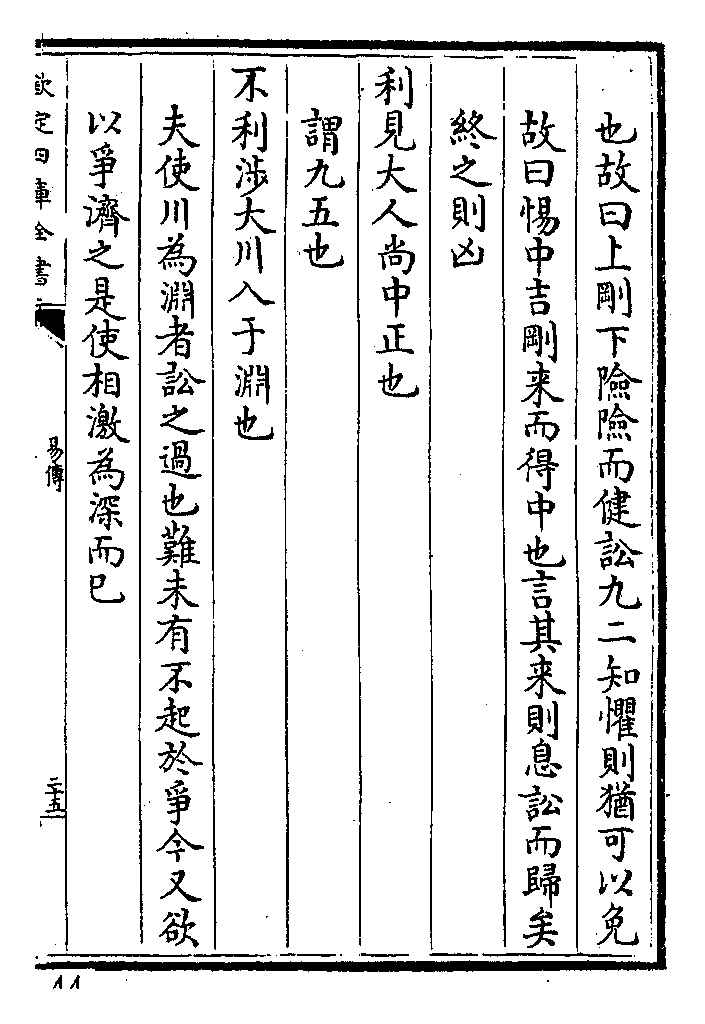 也故曰上剛下險險而健訟九二知懼則猶可以免
故曰惕中吉剛来而得中也言其来則息訟而歸矣
終之則凶
利見大人尚中正也
謂九五也
不利涉大川入于淵也
夫使川為淵者訟之過也難未有不起於爭今又欲
以爭濟之是使相激為深而已
欽定四庫全書
易傳
二十五